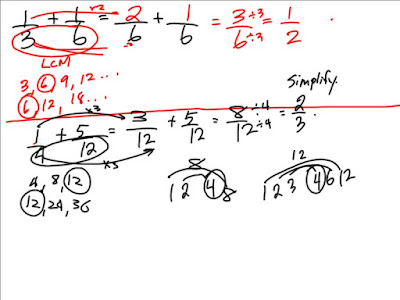 1/3 + 1/6 = 2/6 + 1/6 = 3/6 ÷3/÷3 = 1/2
×2
LCM
3, 6, 9, 12 ...
6, 12, 18 ...
Simplify
1/4 + 5/12 = 3/12 + 5/12 = 8/12 ÷4/÷4 = 2/3
×3
×3
4, 8, 12
12, 24, 36
8
1 2 4 8
12
1 2 3 4 6 12